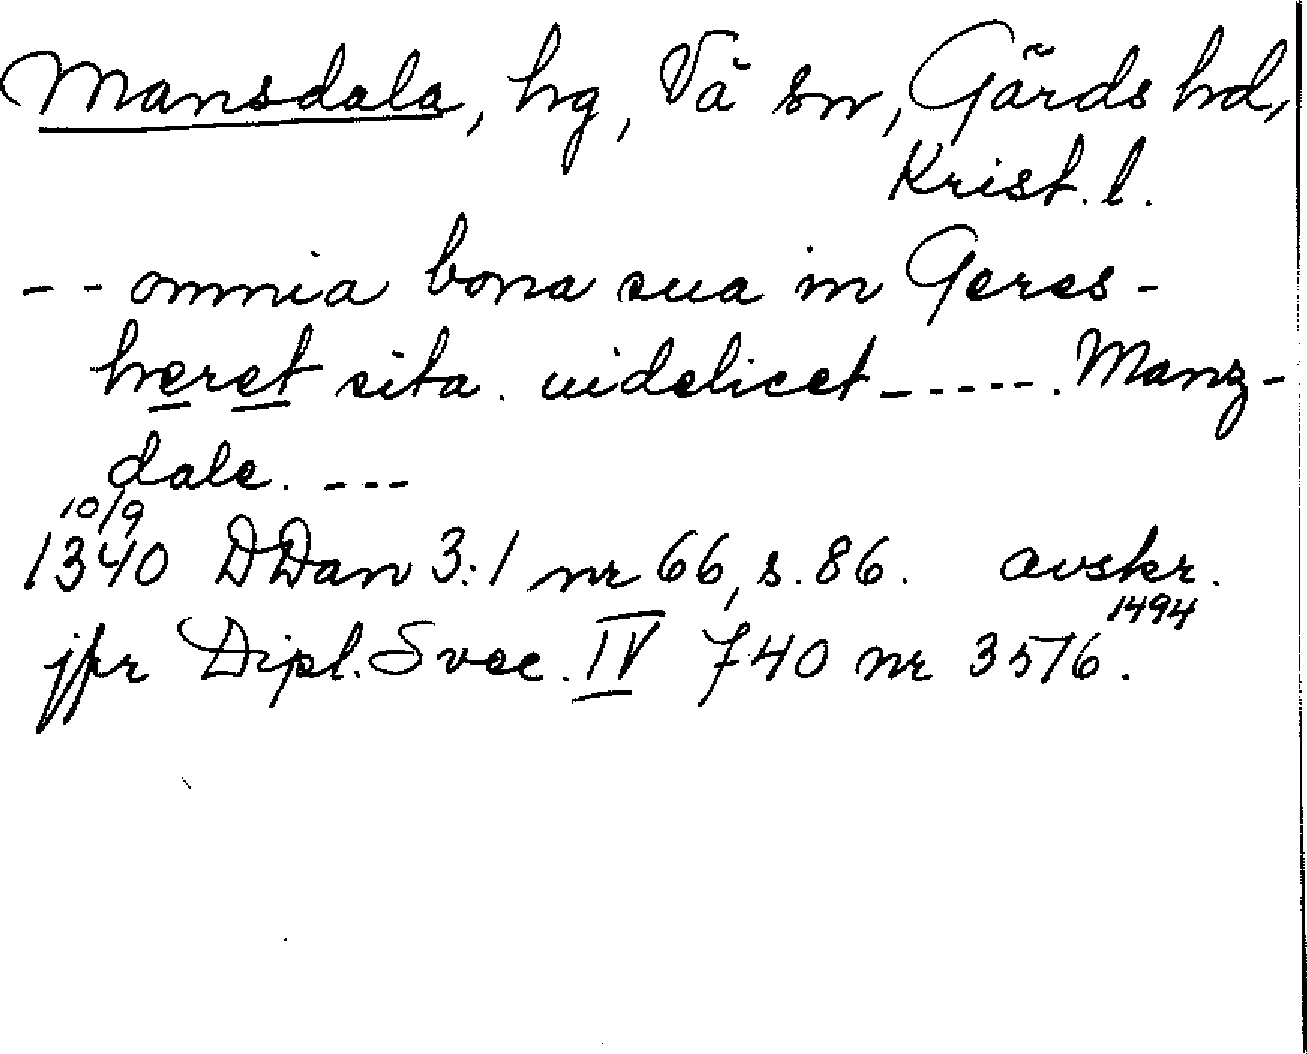 Mansdala, hg, Vä sn, Gärds hd,
Krist. l.
-- omnia bona sua in Geres-
heret sita. uidelicet -----. Manz-
dale. ---
10/9
1340 DDan 3:1 nr 66, s. 86. avskr.
1494
jfr Dipl. Svec. IV 740 nr 3576.